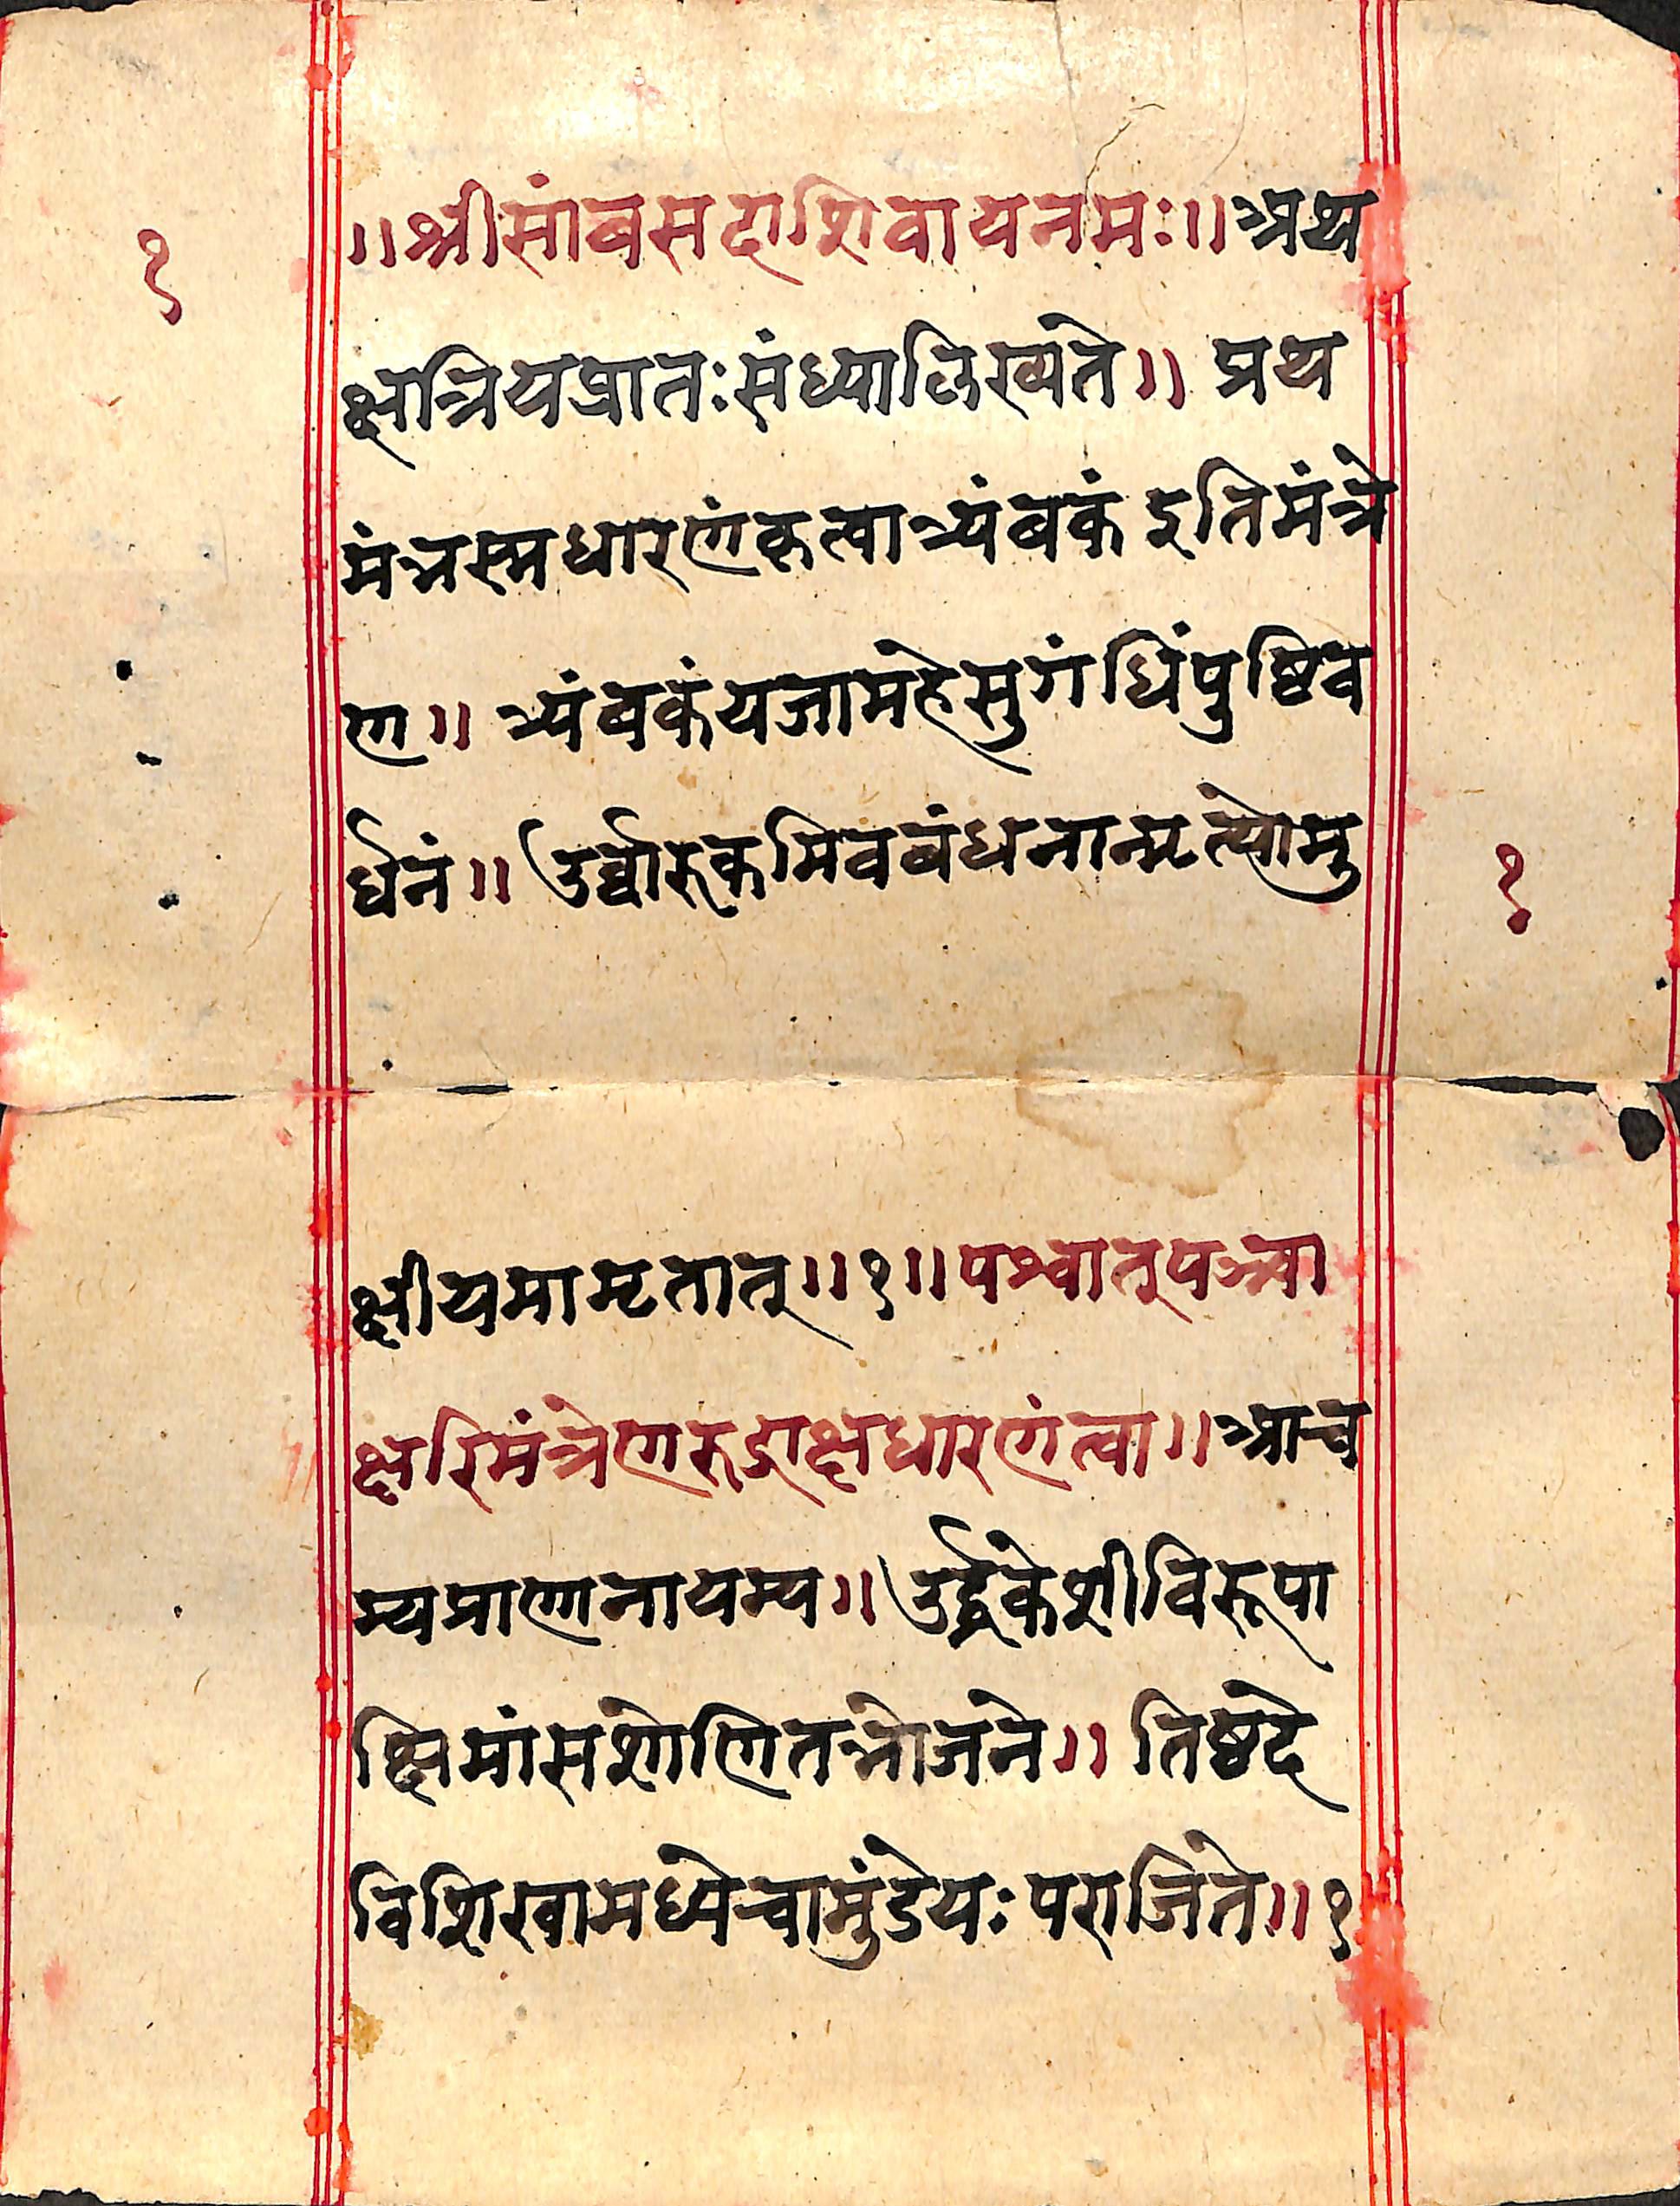 ॥श्रीसांबसदाशिवायनमः॥अथ
१
क्षत्रियप्रातःसंध्यालिख्यते॥ प्रथ
मंभस्मधारणंकृत्वात्र्यंबकं इतिमंत्रे
ण॥ त्र्यंबकंयजामहेसुगंधिंपुष्टिव
र्धनं॥ उर्व्वारुकमिवबंधनान्मृत्योमु
१
क्षीयमामृतात्॥१॥पश्चात्पञ्चा
क्षरिमंत्रेणरुद्राक्षधारणंत्वा॥आच
म्यप्राणानायम्य॥ उर्द्धकेशीविरूपा
क्षिमांसशोणितभोजने॥ तिष्ठदे
विशिखामध्येचामुंडेयः पराजिते॥१